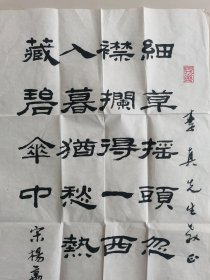 李真先生教正
細草搖頭忽
襟攔得一西
入暮猶愁熱
藏碧傘中
宋楊萬